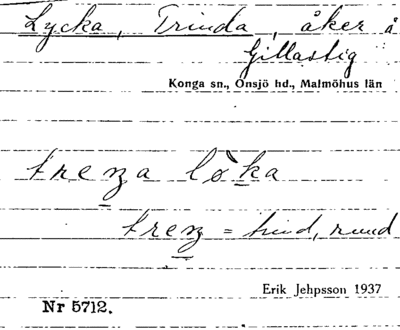 Lycka, Trinda, åker å
Gillastig
Konga sn., Onsjö hd., Malmöhus län
trenza lo̊ka
trenz = trind, rund
Erik Jehpsson 1937
Nr 5712.